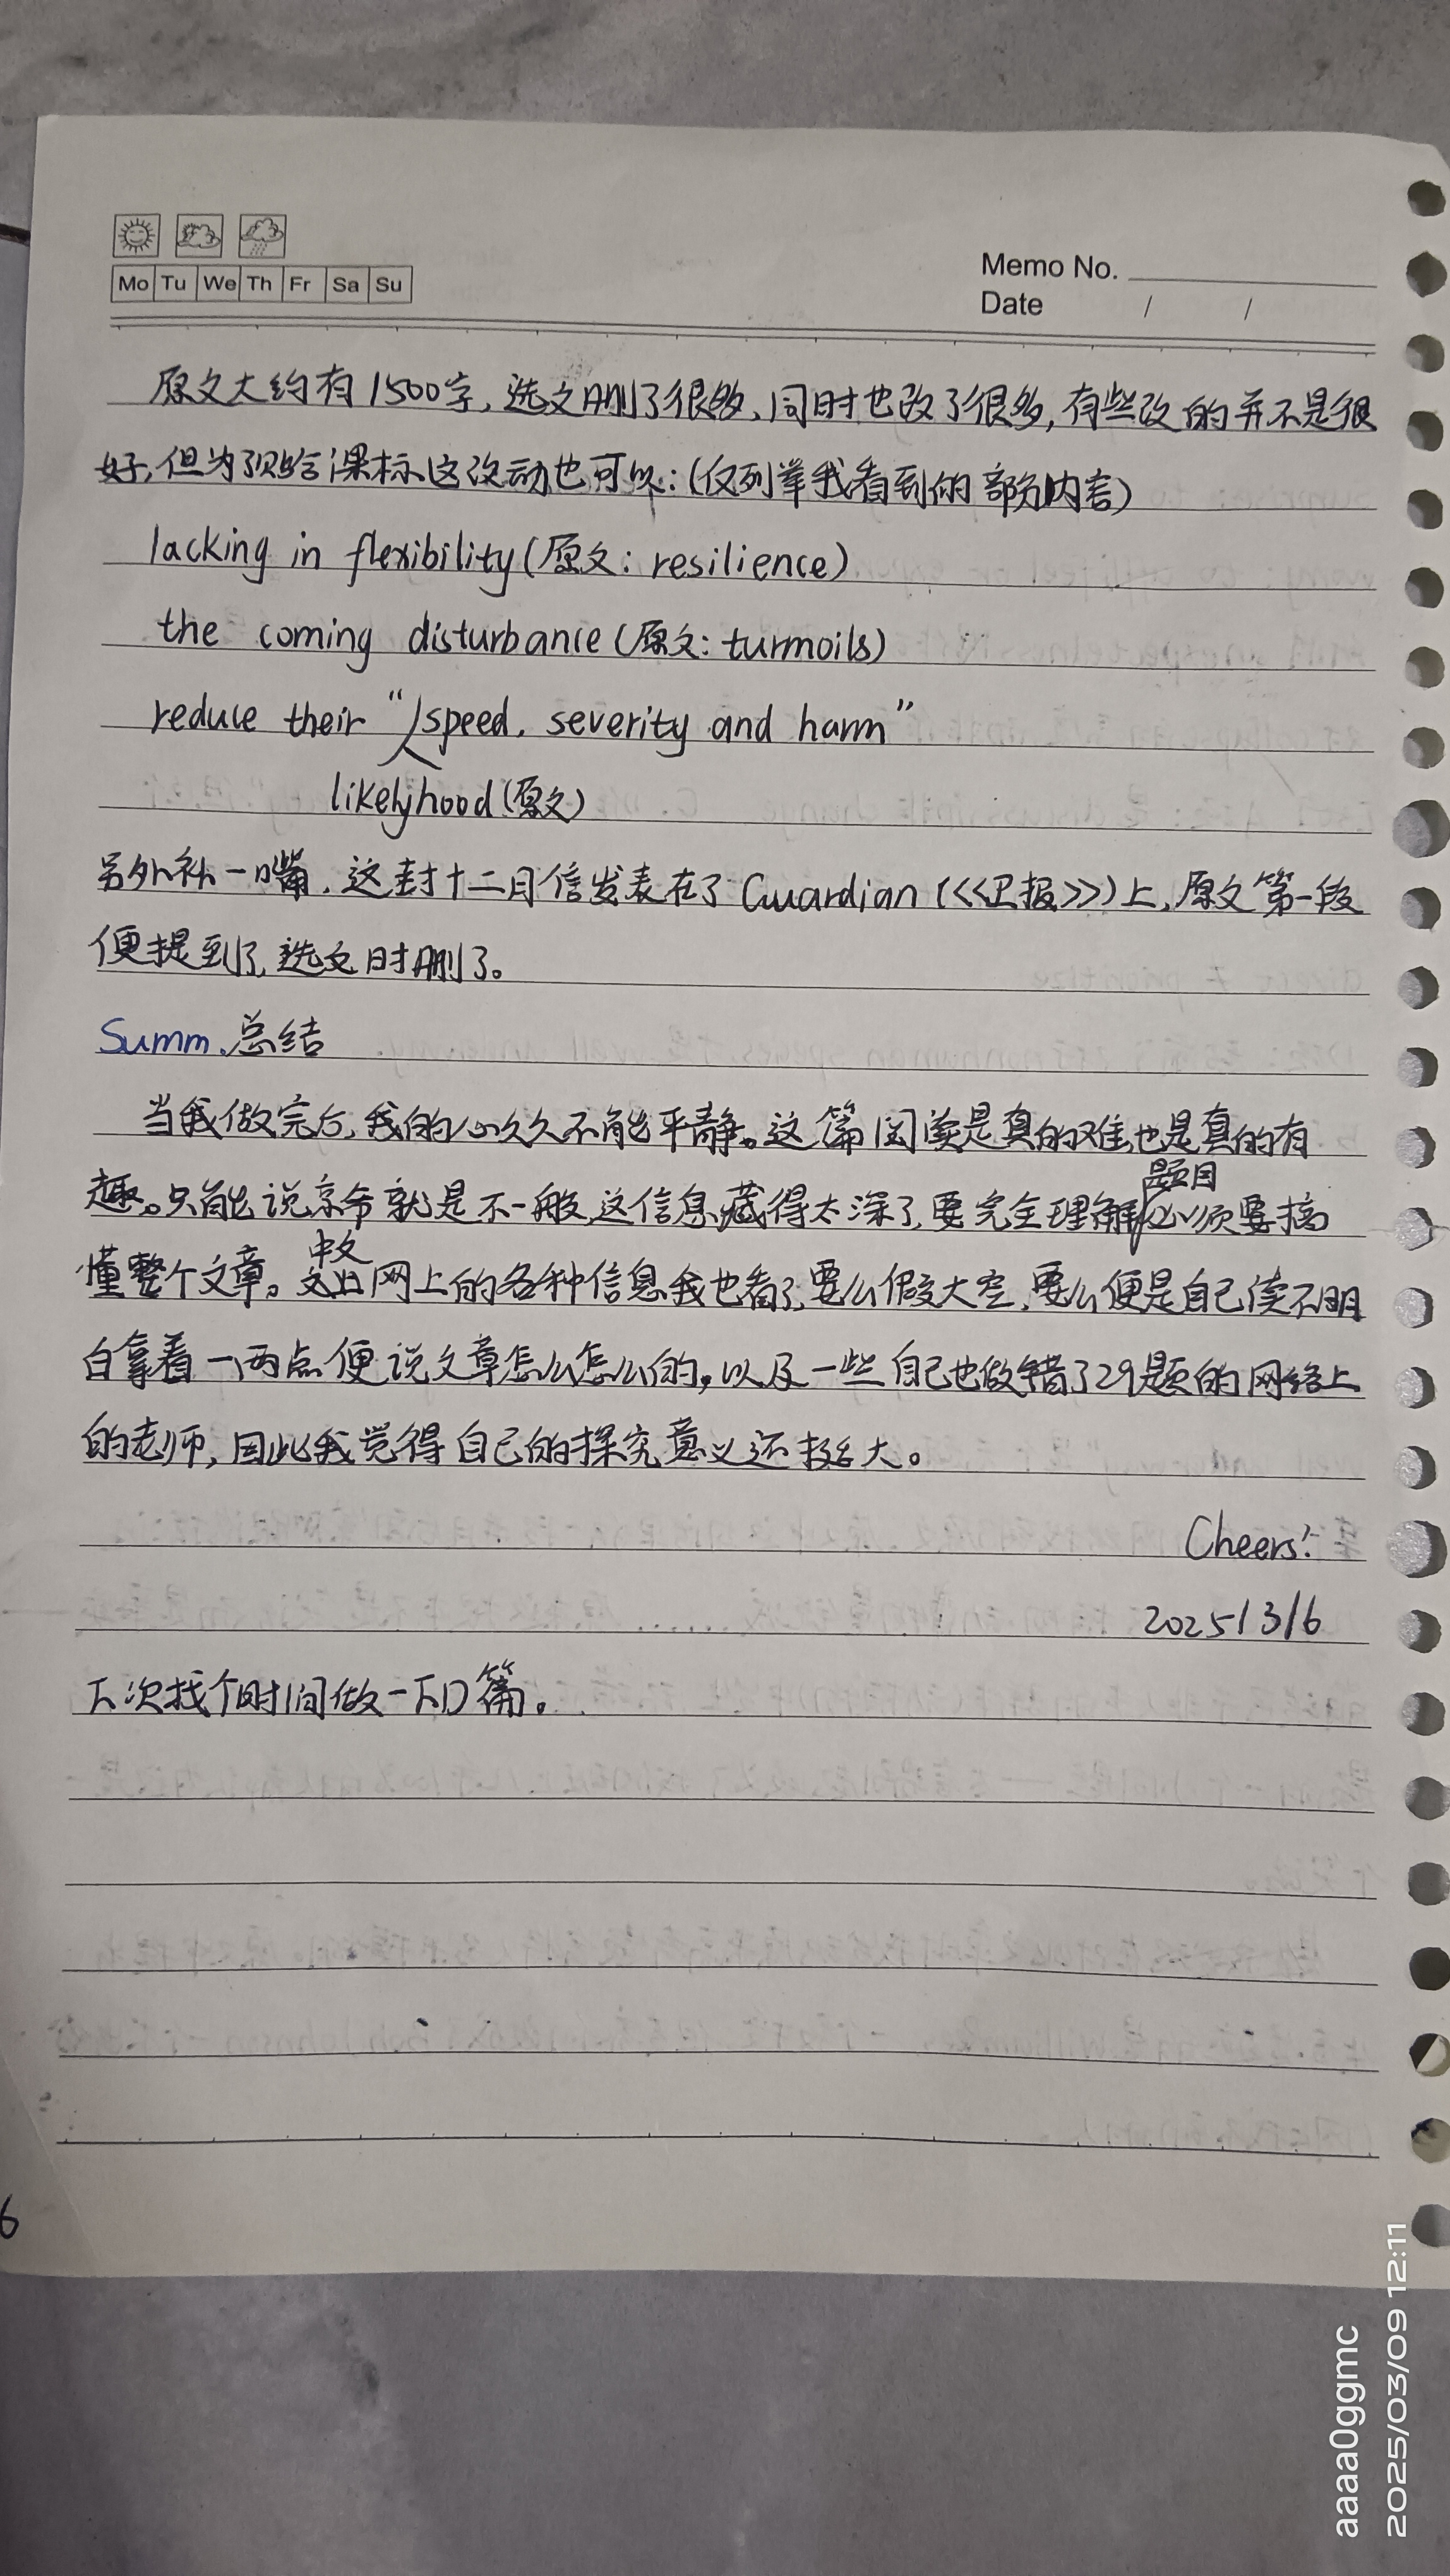 Mo Tu We Th Fr Sa Su
Memo No.
Date / /
原文大约有1500字,选文删了很多、同时也改了很多,有些改的并不是很
好,但为了贴合课标这改动也可以:(仅列举我看到的部分内容)
lacking in flexibility(原文: resilience)
the coming disturbance(原文: turmoils)
reduce their "speed, severity and harm"
likelyhood(原文)
另外补一嘴,这封十二月信发表在了Guardian(<<卫报>>)上,原文第一段
便提到了,选文时删了。
Summ.总结
当我做完后,我的心久久不能平静。这篇阅读是真的难,也是真的有
题目
趣。只能说京命就是不一般,这信息藏得太深了,要完全理解必须要搞
中文
懂整个文章。网上的各种信息我也看了,要么假大空,要么便是自己读不明
白拿着一两点便说文章怎么怎么的,以及一些自己也做错了29题的网络上
的老师,因此我觉得自己的探究意义还挺大。
Cheers!
2025/3/6
下次找个时间做一下D篇。
6
aaaa0ggmc
2025/03/09 12:11